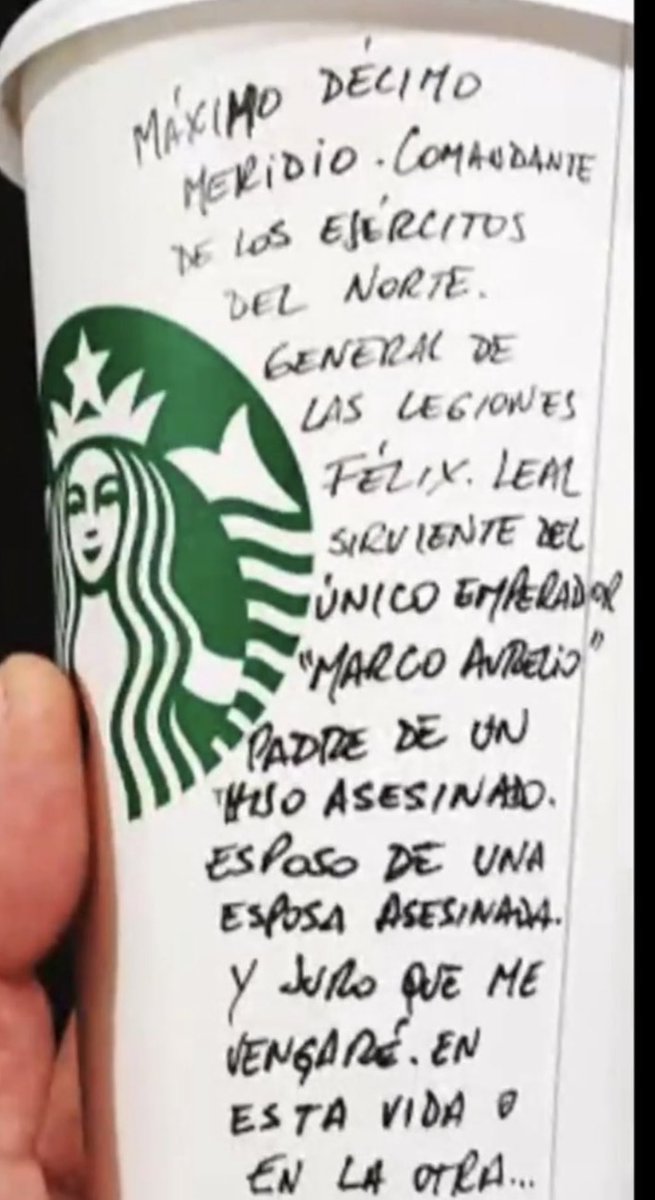 MÁXIMO DÉCIMO
MERIDIO. COMANDANTE
DE LOS EJÉRCITOS
DEL NORTE.
GENERAL DE
LAS LEGIONES
FÉLIX. LEAL
SIRVIENTE DEL
ÚNICO EMPERADOR
"MARCO AURELIO"
PADRE DE UN
HIJO ASESINADO.
ESPOSO DE UNA
ESPOSA ASESINADA.
Y JURO QUE ME
VENGARÉ. EN
ESTA VIDA O
EN LA OTRA...